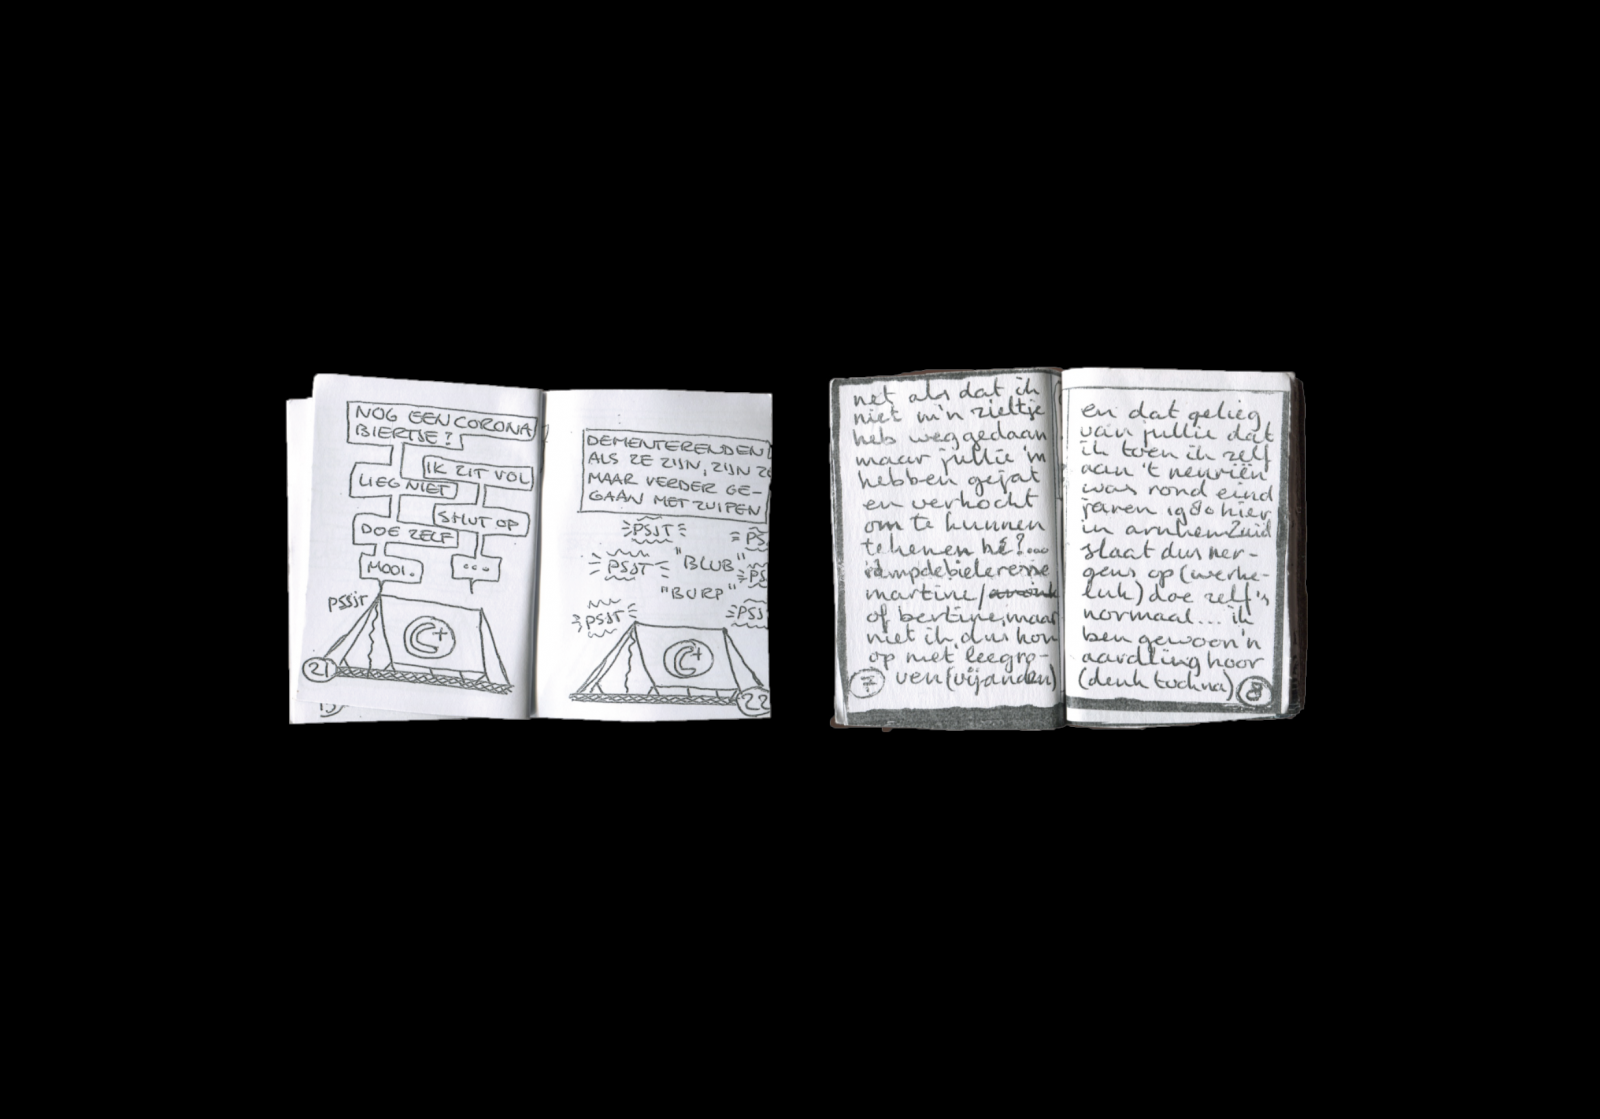 NOG EEN CORONA
BIERTJE?
IK ZIT VOL
LIEG NIET
SHUT OP
DOE ZELF
MOOI.
...
PSSJT
C+
21
15
DEMENTERENDEN
ALS ZE ZIJN, ZIJN ZE
MAAR VERDER GE-
GAAN MET ZUIPEN
PSJT
PS
"BLUB"
PSJT
PS
"BURP"
PSJT
PSJ
C+
22
net als dat ik
niet m'n zieltje
heb weggedaan
maar jullie 'm
hebben gejat
en verkocht
om te kunnen
tekenen hé?...
martine/anouk
of bertine, maar
niet ik, dus hou
op met leegro-
ven (vijanden)
7
en dat gelieg
van jullie dat
ik toen ik zelf
aan 't neuriën
was rond eind
jaren 1980 hier
in arnhem Zuid
slaat dus ner-
gens op (werke-
lijk) doe zelf 's
normaal... ik
ben gewoon 'n
aardling hoor
(denk tuchna)
8